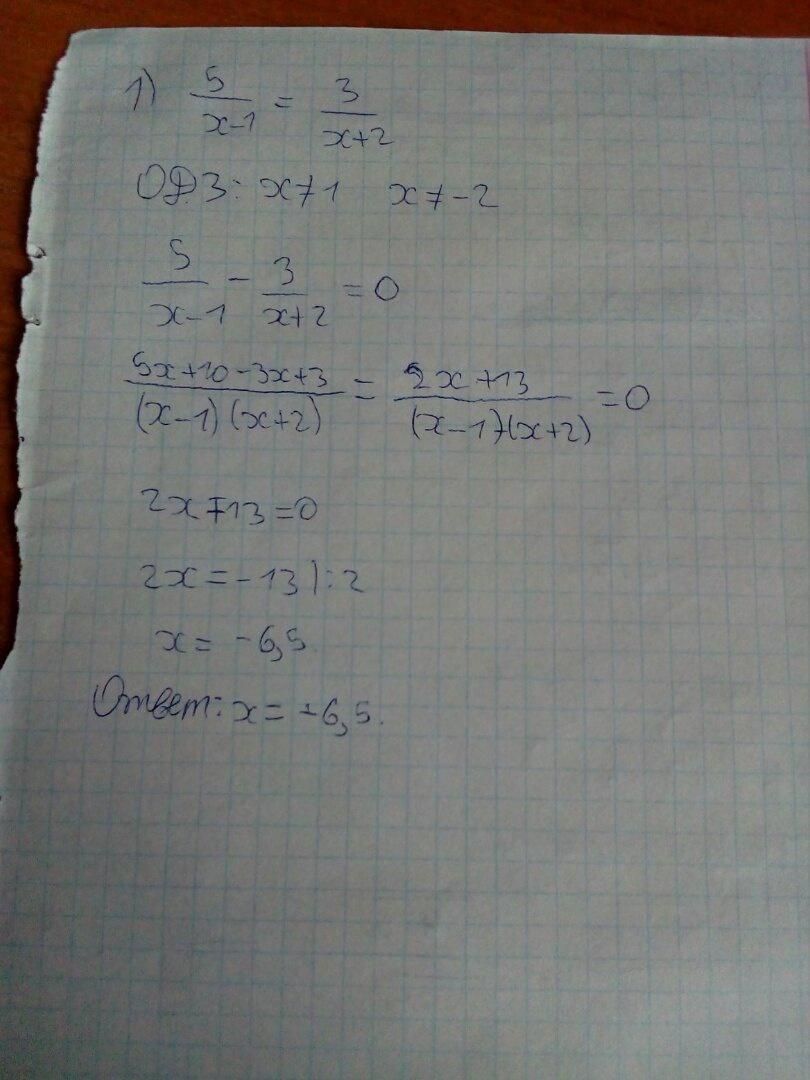 1) 5/(x-1) = 3/(x+2)
ОДЗ: x≠1 x≠-2
5/(x-1) - 3/(x+2) = 0
(5x+10-3x+3)/((x-1)(x+2)) = (2x+13)/((x-1)(x+2)) = 0
2x+13=0
2x=-13 |:2
x= -6,5
Ответ: x= -6,5.